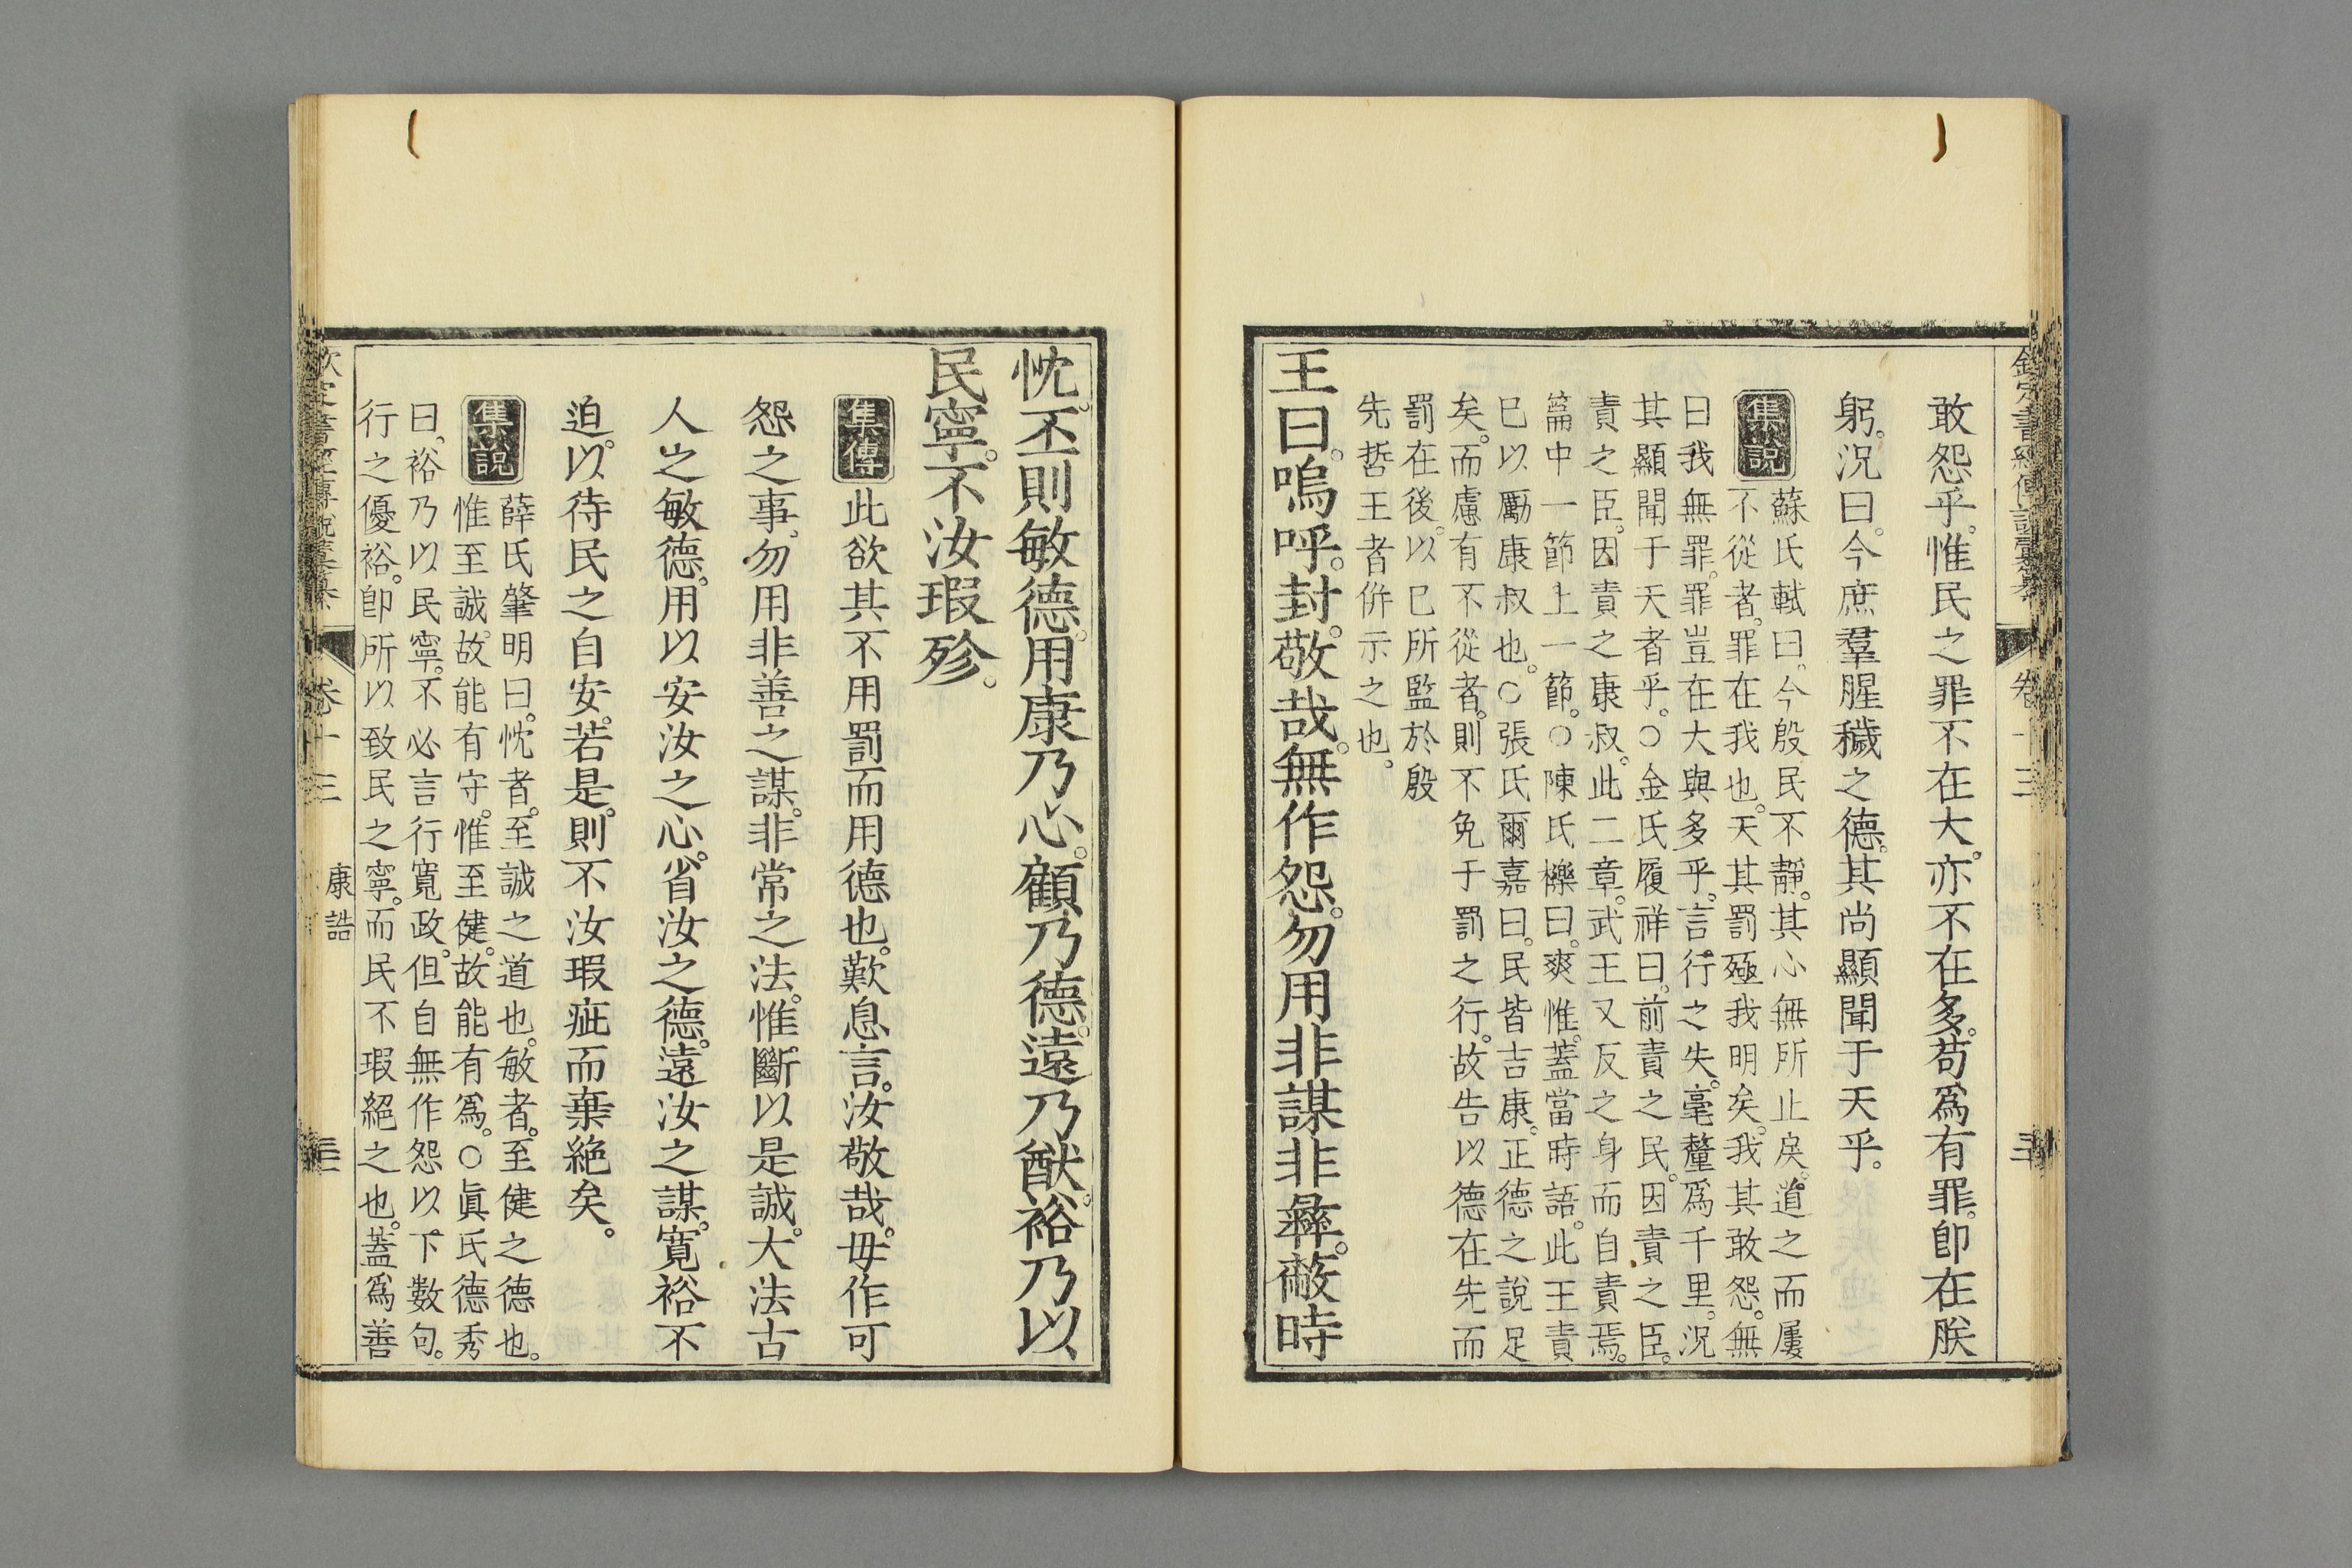 欽定書經傳說彙纂 卷十三
敢怨乎。惟民之罪。不在大。亦不在多。苟爲有罪。卽在朕
躬。況曰。今庶羣腥穢之德。其尚顯聞于天乎。
集說
蘇氏軾曰。今殷民不靜。其心無所止戾。道之而屢
不從者。罪在我也。天其罰殛我明矣。我其敢怨。無
曰我無罪。罪豈在大與多乎。言行之失。毫釐爲千里。況
其顯聞于天者乎。○金氏履祥曰。前責之民。因責之臣。
責之臣。因責之康叔。此二章。武王又反之身而自責焉。
篇中一節上一節。○陳氏櫟曰。爽惟。蓋當時語。此王責
已以勵康叔也。○張氏爾嘉曰。民皆吉康。正德之說足
矣。而慮有不從者。則不免于罰之行。故告以德在先而
罰在後。以已所監於殷
先哲王者併示之也。
王曰。嗚呼。封。敬哉。無作怨。勿用非謀非彝。蔽時
忱。丕則敏德。用康乃心。顧乃德。遠乃猷。裕乃以
民寧。不汝瑕殄。
集傳
此欲其不用罰而用德也。歎息言。汝敬哉。毋作可
怨之事。勿用非善之謀。非常之法。惟斷以是誠。大法古
人之敏德。用以安汝之心。省汝之德。遠汝之謀。寬裕不
迫。以待民之自安。若是。則不汝瑕疵而棄絶矣。
集說
薛氏肇明曰。忱者。至誠之道也。敏者。至健之德也。
惟至誠。故能有守。惟至健。故能有爲。○眞氏德秀
曰。裕乃以民寧。不必言行寬政。但自無作怨以下數句。
行之優裕。卽所以致民之寧。而民不瑕絕之也。蓋爲善
欽定書經傳說彙纂 卷十三 康誥